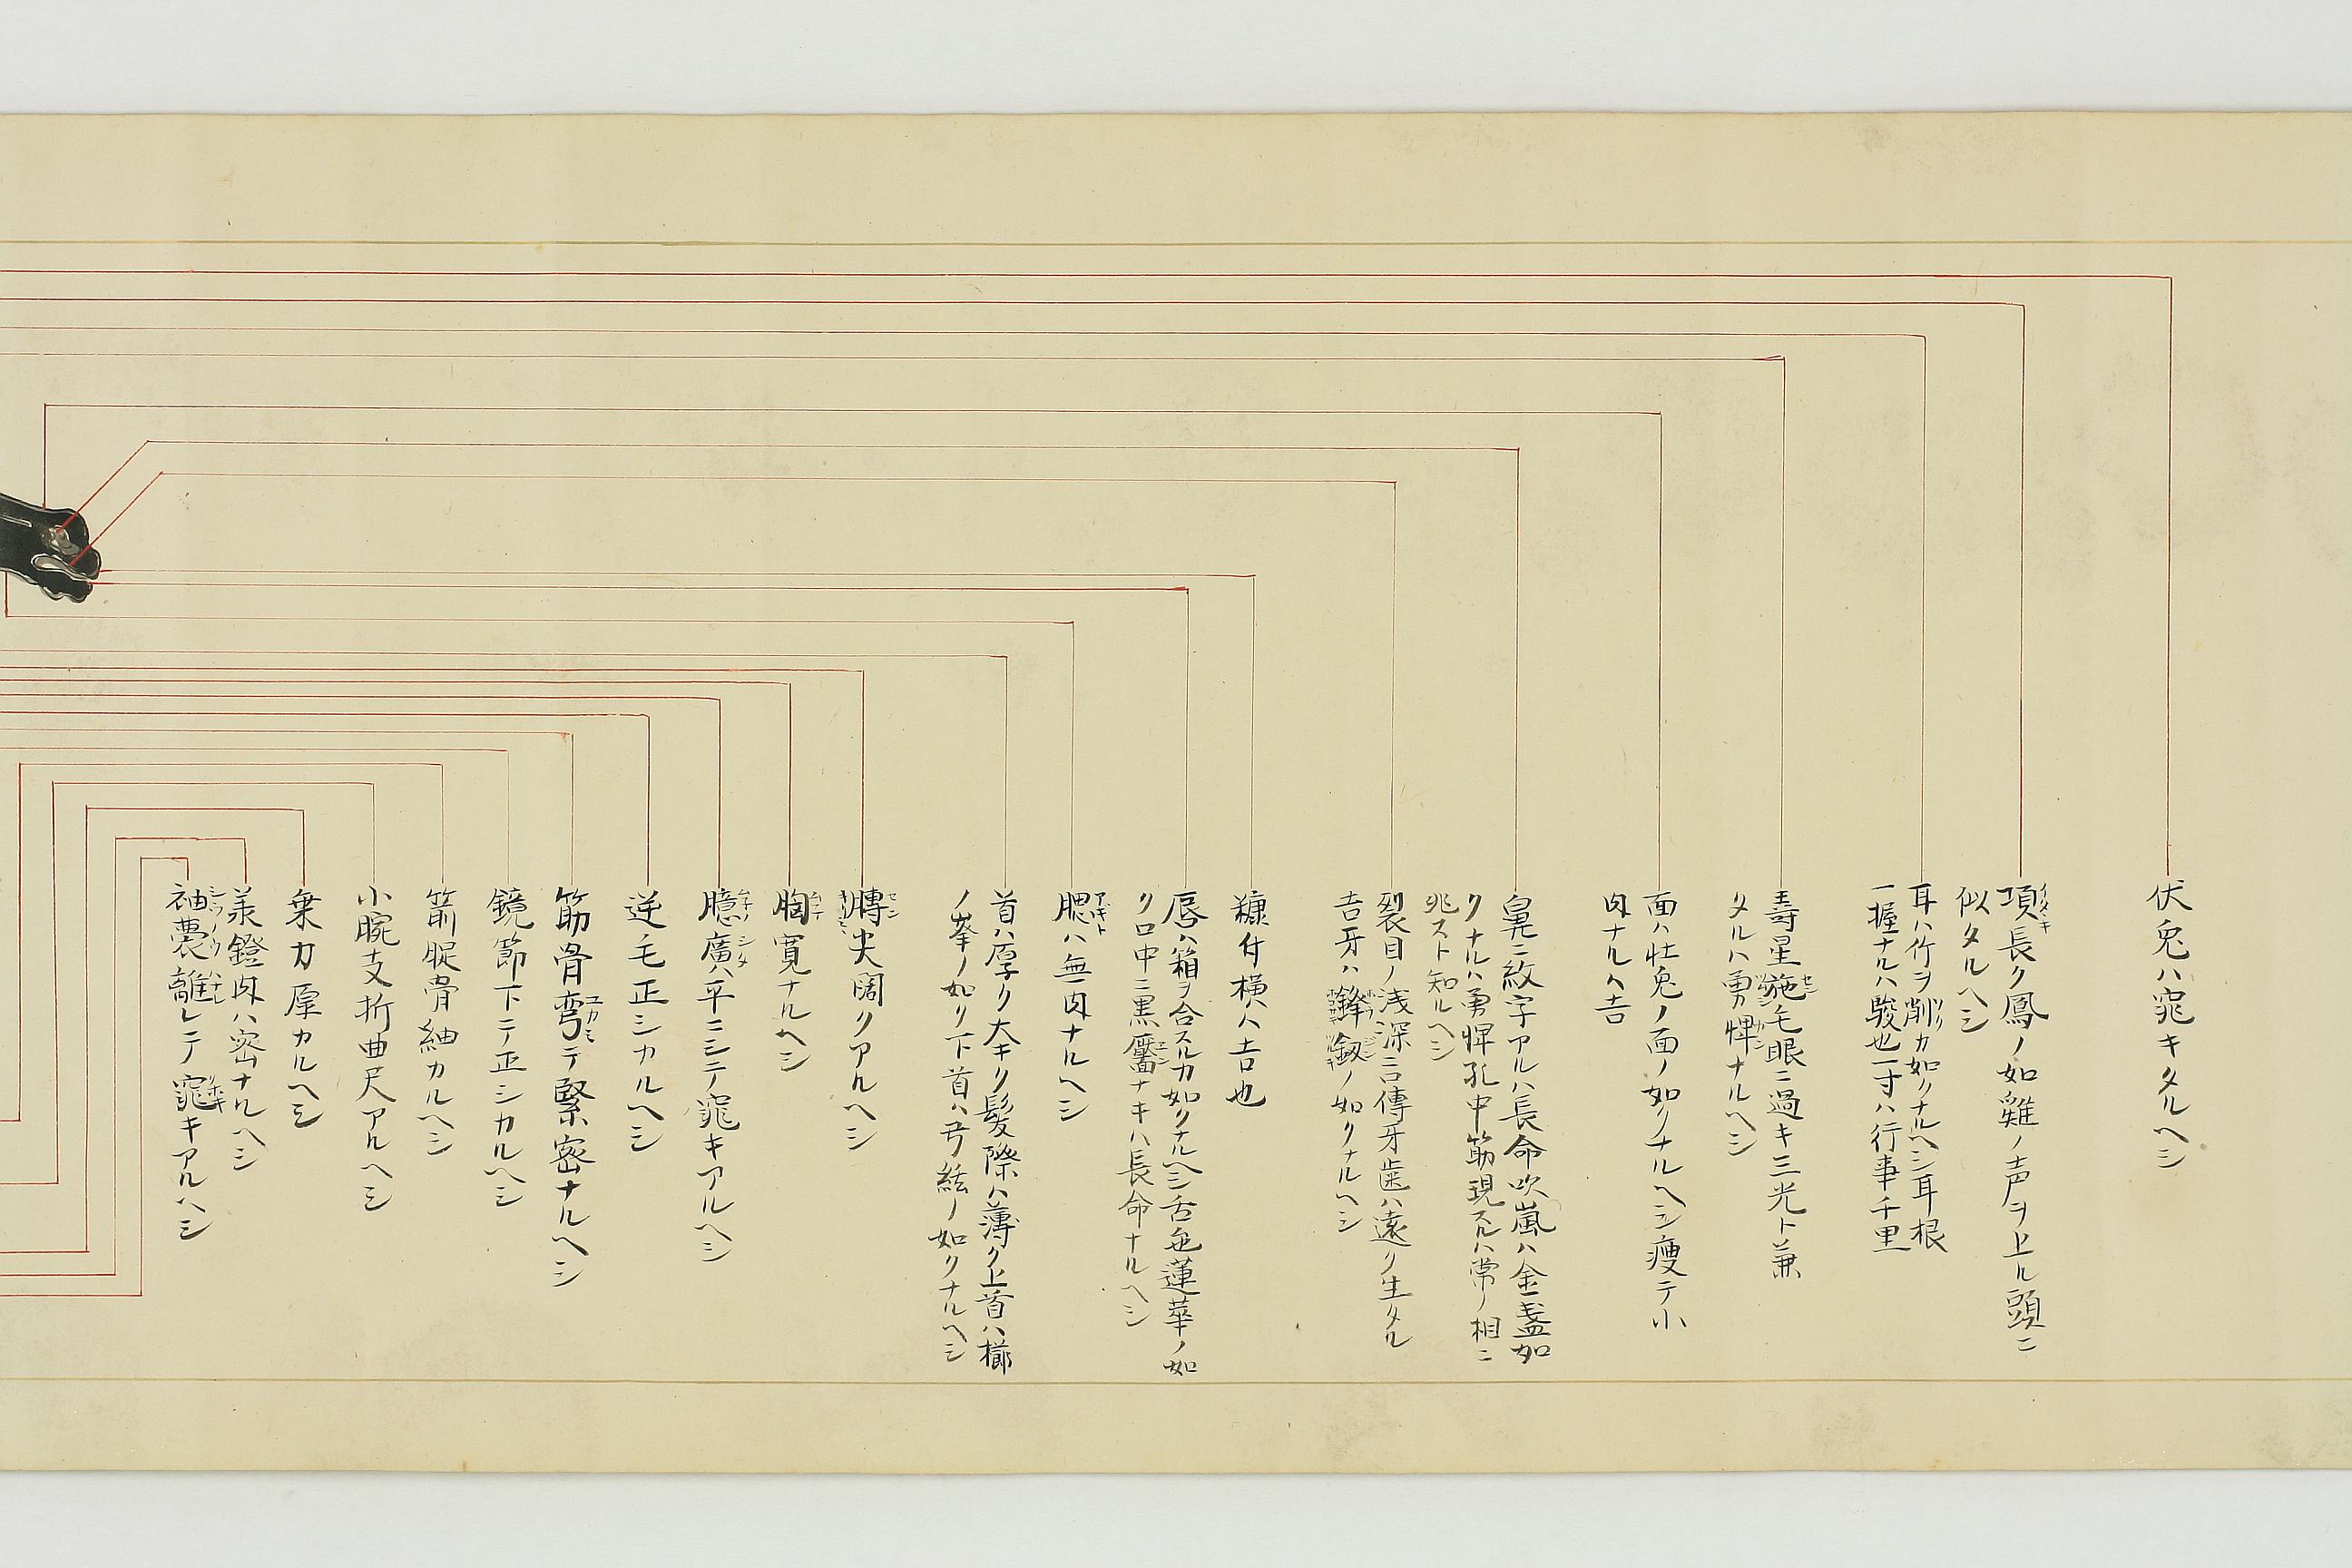 伏兎ハ窕キタルヘシ
項長ク鳳ノ如雞ノ声ヲ上ル頭ニ
似タルヘシ
耳ハ竹ヲ削カ如クナルヘシ耳根
一握ナルハ駿也一寸ハ行事千里
壽星施毛眼ニ過キ三光ト兼
タルハ勇悍ナルヘシ
面ハ壮兎ノ面ノ如クナルヘシ痩テ小
肉ナルハ吉
鼻ニ紋字アルハ長命吹嵐ハ金盞如
クナルハ勇悍孔中筋現スルハ常ノ相ニ
非スト知ルヘシ
裂目ノ浅深ニ傳牙歯ハ遠ク生タル
吉牙ハ鋒釼ノ如クナルヘシ
糠付横ハ吉也
唇ハ箱ヲ合スルカ如クナルヘシ舌色蓮華ノ如
ク口中ニ黒黶ナキハ長命ナルヘシ
腮ハ無肉ナルヘシ
首ハ厚ク大キク髪際ハ薄ク上首ハ櫛
ノ峯ノ如ク下首ハ弓絃ノ如クナルヘシ
膊尖闊クアルヘシ
胸寛ナルヘシ
臆廣ハ平ニシテ窕キアルヘシ
逆毛正シカルヘシ
筋骨弯テ緊密ナルヘシ
鏡節下テ正シカルヘシ
箭腚骨紬カルヘシ
小腕支折曲尺アルヘシ
乗力厚カルヘシ
鐙肉ハ密ナルヘシ
袖嚢離レテ窕キアルヘシ